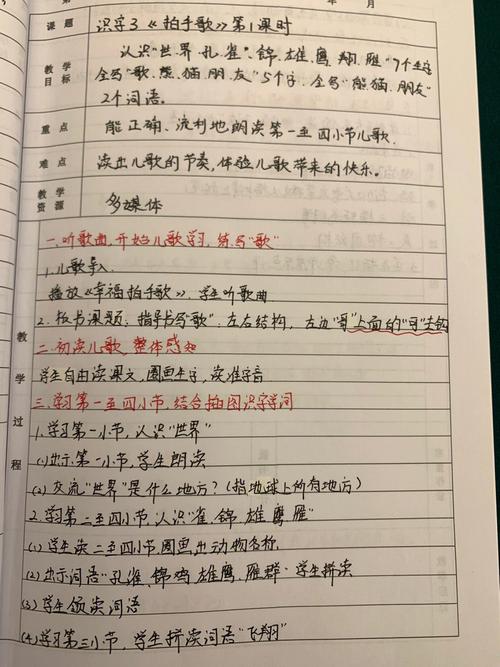 年 月
课题 识字3《拍手歌》第1课时
认识“世、界、孔、雀、锦、雄、鹰、翔、雁”9个生字
教学目标 会写“歌、熊、猫、朋、友”5个字,会写“熊猫、朋友”
2个词语。
重点 能正确、流利地朗读第一至四小节儿歌.
难点 读出儿歌的节奏,体验儿歌带来的快乐。
教学资源 多媒体
教学过程
一.听歌曲,开始儿歌学习,练写“歌”
1.儿歌导入.
播放《幸福拍手歌》.学生听歌曲
2.板书课题,指导书写“歌”.左右结构,左边“哥”上面的“可”去钩
二.初读儿歌,整体感知
学生自由读课文,圈画生字,读准字音
三.学习第一至四小节,结合插图识字学词
1.学习第一小节,认识“世界”
(1)出示第一小节,学生朗读
(2)交流“世界”是什么地方?(指地球上所有地方)
2.学习第二至四小节,认识“雀、锦、雄、鹰、雁”
(1)学生读二至四小节,圈画出动物名称.
(2)出示词语“孔雀、锦鸡、雄鹰、雁群”学生拼读
(3)学生领读词语
(4)学习第三小节,学生拼读词语“飞翔”